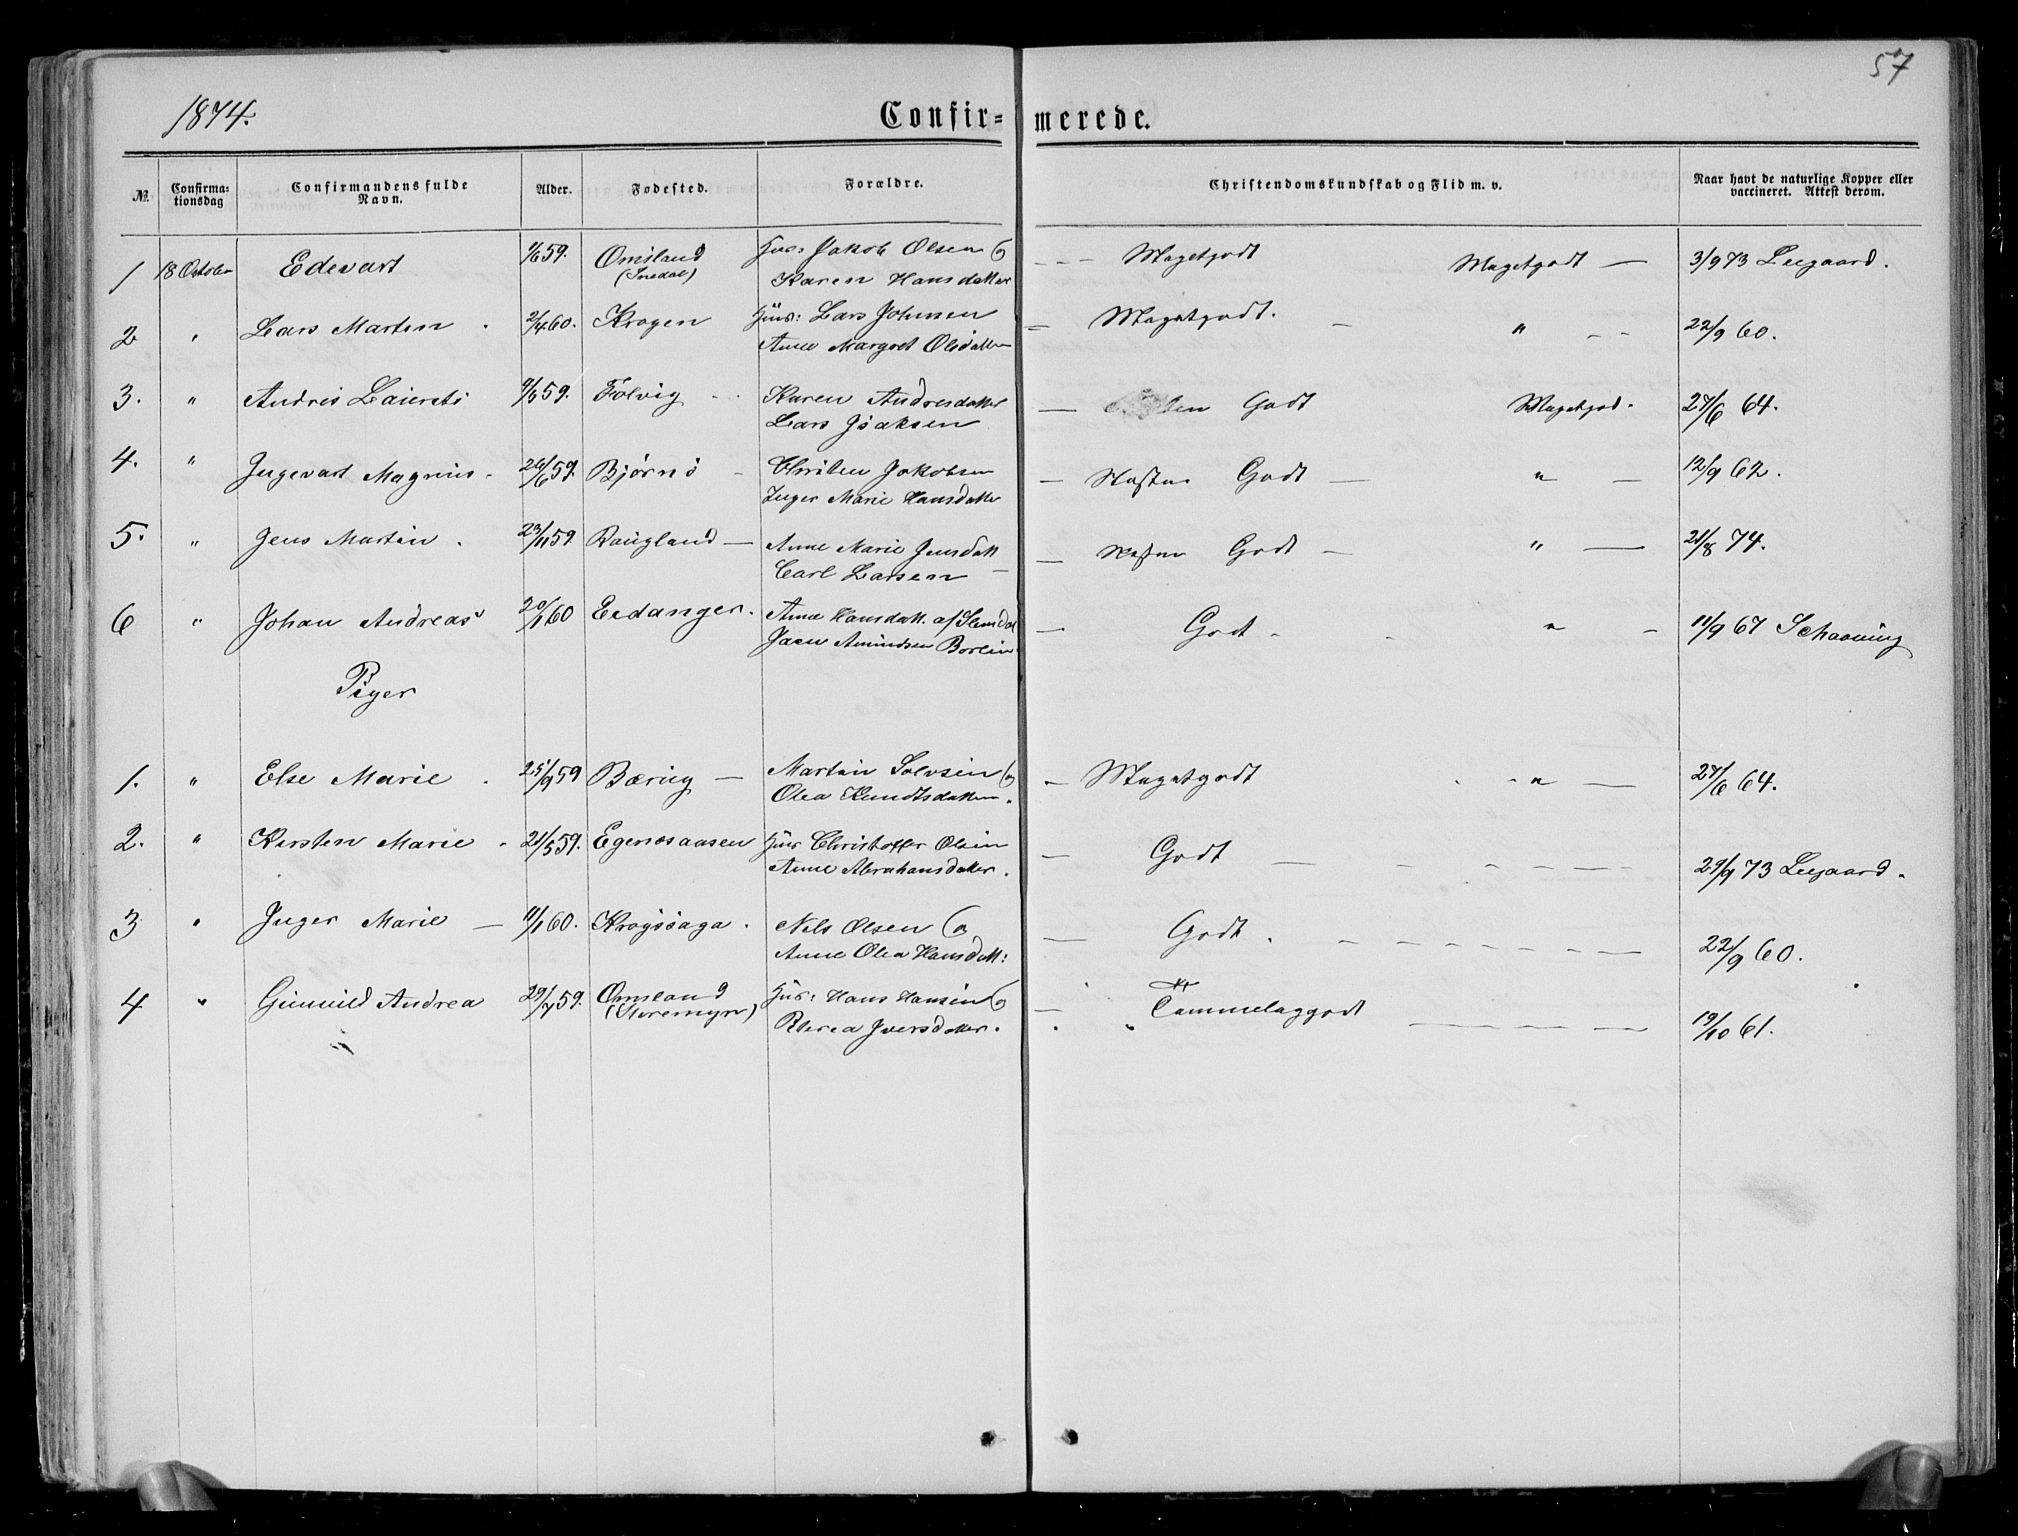 57
1874.
Confir-merede.
No. Confirma-tionsdag Confirmandens fulde Navn. Alder. Fødested. Forældre. Christendomskundskab og Flid m. v. Naar havt de naturlige Kopper eller vaccineret. Attest derom.
1 18 October Edevart 1/6 59. Omsland Huus: Jakob Olsen Og Meget godt Meget godt — 3/9 73 Leegaard.
Karen Hansdatter
2 " Lars Martin 2/4 60. Krogen Huus: Lars Johnsen Meget godt. " 22/9 60.
Anne Margret Olsdatter
3. " Andris 9/5 59. Følvig Karen Andresdatter Godt Megetgod. 27/6 64.
Lars Isaksen
4. " Ingevart Magnus 26/6 59. Bjørnø Jakobsen Næsten Godt — " — 12/9 62.
Inger Marie Hansdatter
5. " Jens Martin 23/11 59 Raugland — Anne Marie Jensdatt Næsten Godt — " — 21/8 74.
Carl Larsen
6 " Johan Andreas 20/1 60 Eidanger. Anne Hansdatt. af Godt " 11/9 67 Schaaning
Amundsen
Piger
1. " Else Marie 25/9 59 — Martin Og Meget godt " — 27/6 64.
Olea Knudtsdatter.
2. " Kirsten Marie 21/5 59. Egenesaasen Huus Christoffer Olsen Godt — 29/9 73 Leegaard.
Anne Abrahamsdatter.
3 " Inger Marie — 11/1 60. Krogssaga. Nels Olsen Og Godt. 22/9 60.
Anne Olea Hansdatt:
4 " Gunnild Andrea 29/7 59. Omsland Huus: Hans Hansen Og Temmelig godt 19/10 61.
(Storemyr) Iversdatter.